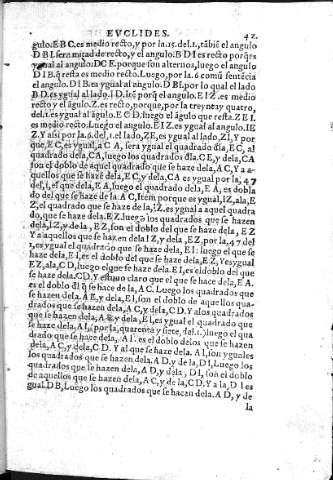 EVCLIDES. 42.
gulo. E B C. es medio recto, y por la .15. del.1. tābiē el angulo
D B I. sera mitad de recto, y el angulo. B D I es recto porq̃ es
ygual al angulo: D C E. porque son alternos, luego el angulo
D I B. q̃ resta es medio recto. Luego, por la .6 comū sentēcia
el angulo. D I B. es ygual al angulo. D B I. por lo qual el lado
B D. es ygual al lado. I D. Itē porq̃ el angulo. E I Z. es medio
recto y el āgulo. Z. es recto, porque, por la treynta y quatro,
del.1. es ygual al āgulo. E C D. luego el āgulo que resta. Z E I.
es medio recto. Luego el angulo. E I Z. es ygual al angulo. I E
Z. Y asi por la .6. del .1. el lado, Z E, es ygual al lado, Z I, Y por
que, E C, es ygual, a C A, sera ygual el quadrado dla, E C, al
quadrado dela, C A, luego los quadrados dla. C E, y dela, C A
son el doblo de aquel quadrado que se haze dela, A C, Y a a-
quellos que se hazē dela, E C, y dela, C A es ygual por la, 47
del, 1, el que dela, E A, luego el quadrado dela, E A, es dobla
do del que se haze de la, A C, Item porque es ygual, I Z, ala, E
Z, el quadrado que se haze de la, I Z. es ygual a aquel quadra
do, que se haze dela. E Z. luego los quadrados que se hazen
dela, I Z, y de la, E Z, son el doblo del que se haze dela, E Z
Y a aquellos que se hazen dela I Z, y dela, E Z, por la, 47 del
1, es ygual el quadrado que se haze dela, E I: luego el que se
haze dela, E I, es el doblo del que se haze dela, E Z, Y es ygual
E Z, ala, C D, luego el que se haze dela. E I, es el doblo del que
se haze dela. C D. Y estuuo claro que el que se haze dela, E A.
es el doblo dl q̃ se haze de la, A C. Luego los quadrados que
se hazen dela. A E, y dela, E I, son el doblo de aquellos qua-
drados que se hazen dela, A C, y dela, C D. Y alos quadrados
que se hazen dela, A E, y dela, E I, es ygual el quadrado que
se haze dela, A I, (por la, quarenta y siete, del.1.) luego el qua
drado que se haze dela, A I. es el doblo delos que se hazen
dela, A C, y dela, C D. Y al que se haze dela. A I, son yguales
los quadrados que se hazen dela. A D. y de la, D I, Luego los
quadrados que se hazen dela, A D, y dela, D I, son el doblo
de aquellos que se hazen dela, A C, y de la, C D. Y a la, D I es
ygual. D B, Luego los quadrados que se hazen dela. A D, y de
la